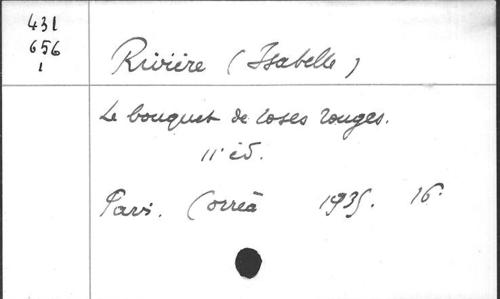 431
656
1
Rivière (Isabelle)
Le bouquet de roses rouges.
11e éd.
Paris. Corrêa 1935. 16.